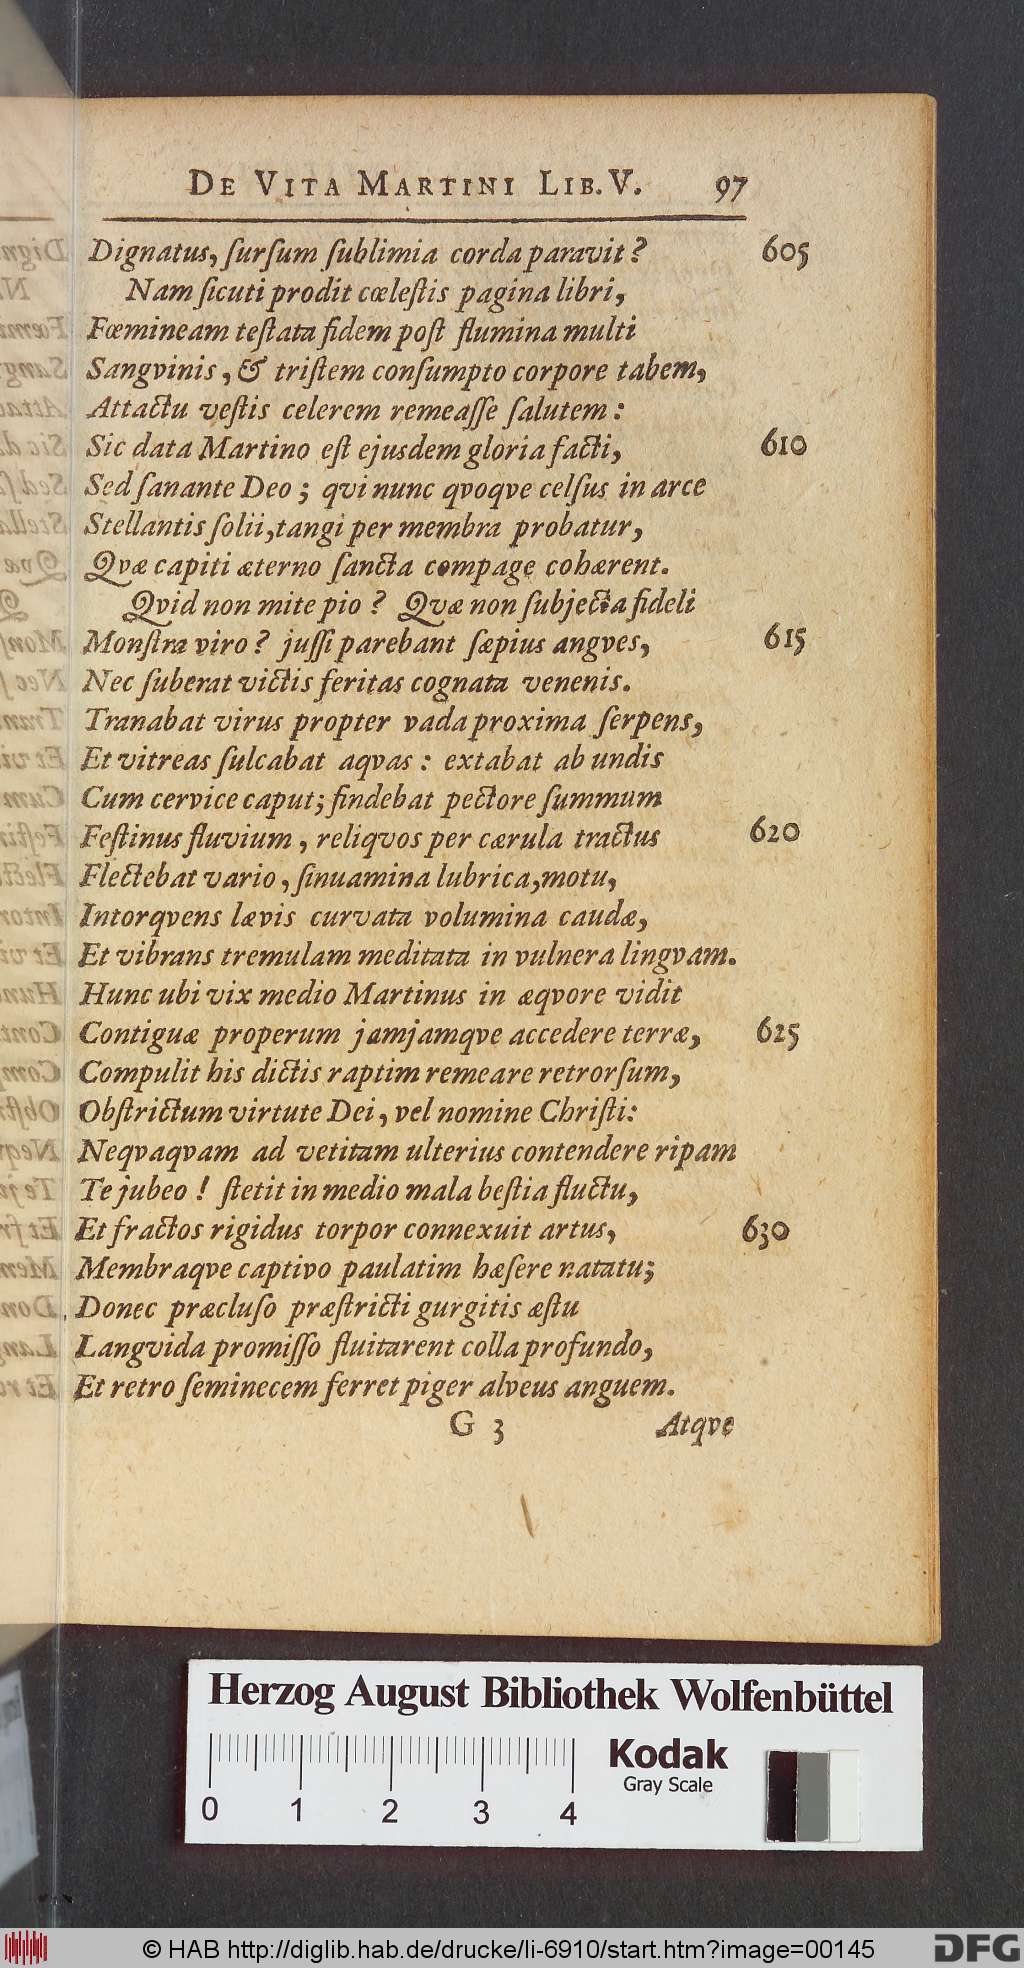 DE VITA MARTINI LIB. V. 97
Dignatus, ſurſum ſublimia corda paravit? 605
Nam ſicuti prodit cœleſtis pagina libri,
Fœmineam teſtata fidem poſt flumina multi
Sangvinis, & triſtem conſumpto corpore tabem,
Attactu veſtis celerem remeaſſe ſalutem:
Sic data Martino eſt ejusdem gloria facti, 610
Sed ſanante Deo; qui nunc qvoqve celſus in arce
Stellantis ſolii, tangi per membra probatur,
Qvæ capiti æterno ſancta compage cohærent.
Qvid non mite pio? Qvæ non ſubjecta fideli
Monſtra viro? juſſi parebant ſæpius angves, 615
Nec ſuberat victis feritas cognata venenis.
Tranabat virus propter vada proxima ſerpens,
Et vitreas ſulcabat aqvas: extabat ab undis
Cum cervice caput; findebat pectore ſummum
Feſtinus fluvium, reliqvos per cærula tractus 620
Flectebat vario, ſinuamina lubrica, motu,
Intorqvens lævis curvata volumina caudæ,
Et vibrans tremulam meditata in vulnera lingvam.
Hunc ubi vix medio Martinus in æqvore vidit
Contiguæ properum jamjamqve accedere terræ, 625
Compulit his dictis raptim remeare retrorſum,
Obſtrictum virtute Dei, vel nomine Chriſti:
Neqvaqvam ad vetitam ulterius contendere ripam
Te jubeo! ſtetit in medio mala beſtia fluctu,
Et fractos rigidus torpor connexuit artus, 630
Membraqve captivo paulatim hæſere natatu;
Donec præcluſo præſtricti gurgitis æſtu
Langvida promiſſo fluitarent colla profundo,
Et retro ſeminecem ferret piger alveus anguem.
G 3 Atqve
Herzog August Bibliothek Wolfenbüttel
Kodak
Gray Scale
0 1 2 3 4
© HAB http://diglib.hab.de/drucke/li-6910/start.htm?image=00145
DFG